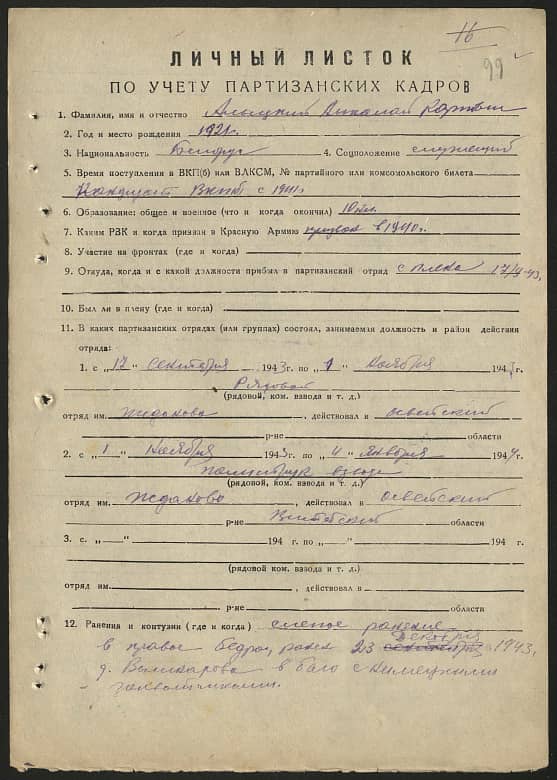 16
99
ЛИЧНЫЙ ЛИСТОК
ПО УЧЕТУ ПАРТИЗАНСКИХ КАДРОВ
1. Фамилия, имя и отчество Николай
2. Год и место рождения 1921г.
3. Национальность 4. Соцположение служащий
5. Время поступления в ВКП(б) или ВЛКСМ, № партийного или комсомольского билета
Кандидат ВКПб с 1941г.
6. Образование: общее и военное (что и когда окончил) 10 кл.
7. Каким РВК и когда призван в Красную Армию призван в 1940г.
8. Участие на фронтах (где и когда)
9. Откуда, когда и с какой должности прибыл в партизанский отряд с плена 17/9-43,
10. Был ли в плену (где и когда)
11. В каких партизанских отрядах (или группах) состоял, занимаемая должность и район действия
отряда:
1. с „17" сентября 1943г. по „1" ноября 194 г.
Рядовой
(рядовой, ком. взвода и т. д.)
отряд им. Жданова, действовал в Освейский
р-не области
2. с „1" ноября 1943г. по „4" января 1944г.
взвода
(рядовой, ком. взвода и т. д.)
отряд им. Жданова, действовал в Освейский
р-не Витебский области
3. с „ " 194 г. по „ " 194 г.
(рядовой, ком. взвода и т. д.)
отряд им. , действовал в
р-не области
12. Ранения и контузии (где и когда) слепое ранение
декабря
в правое бедро, ранен 23 сентября 1943,
д. в бою с немецкими